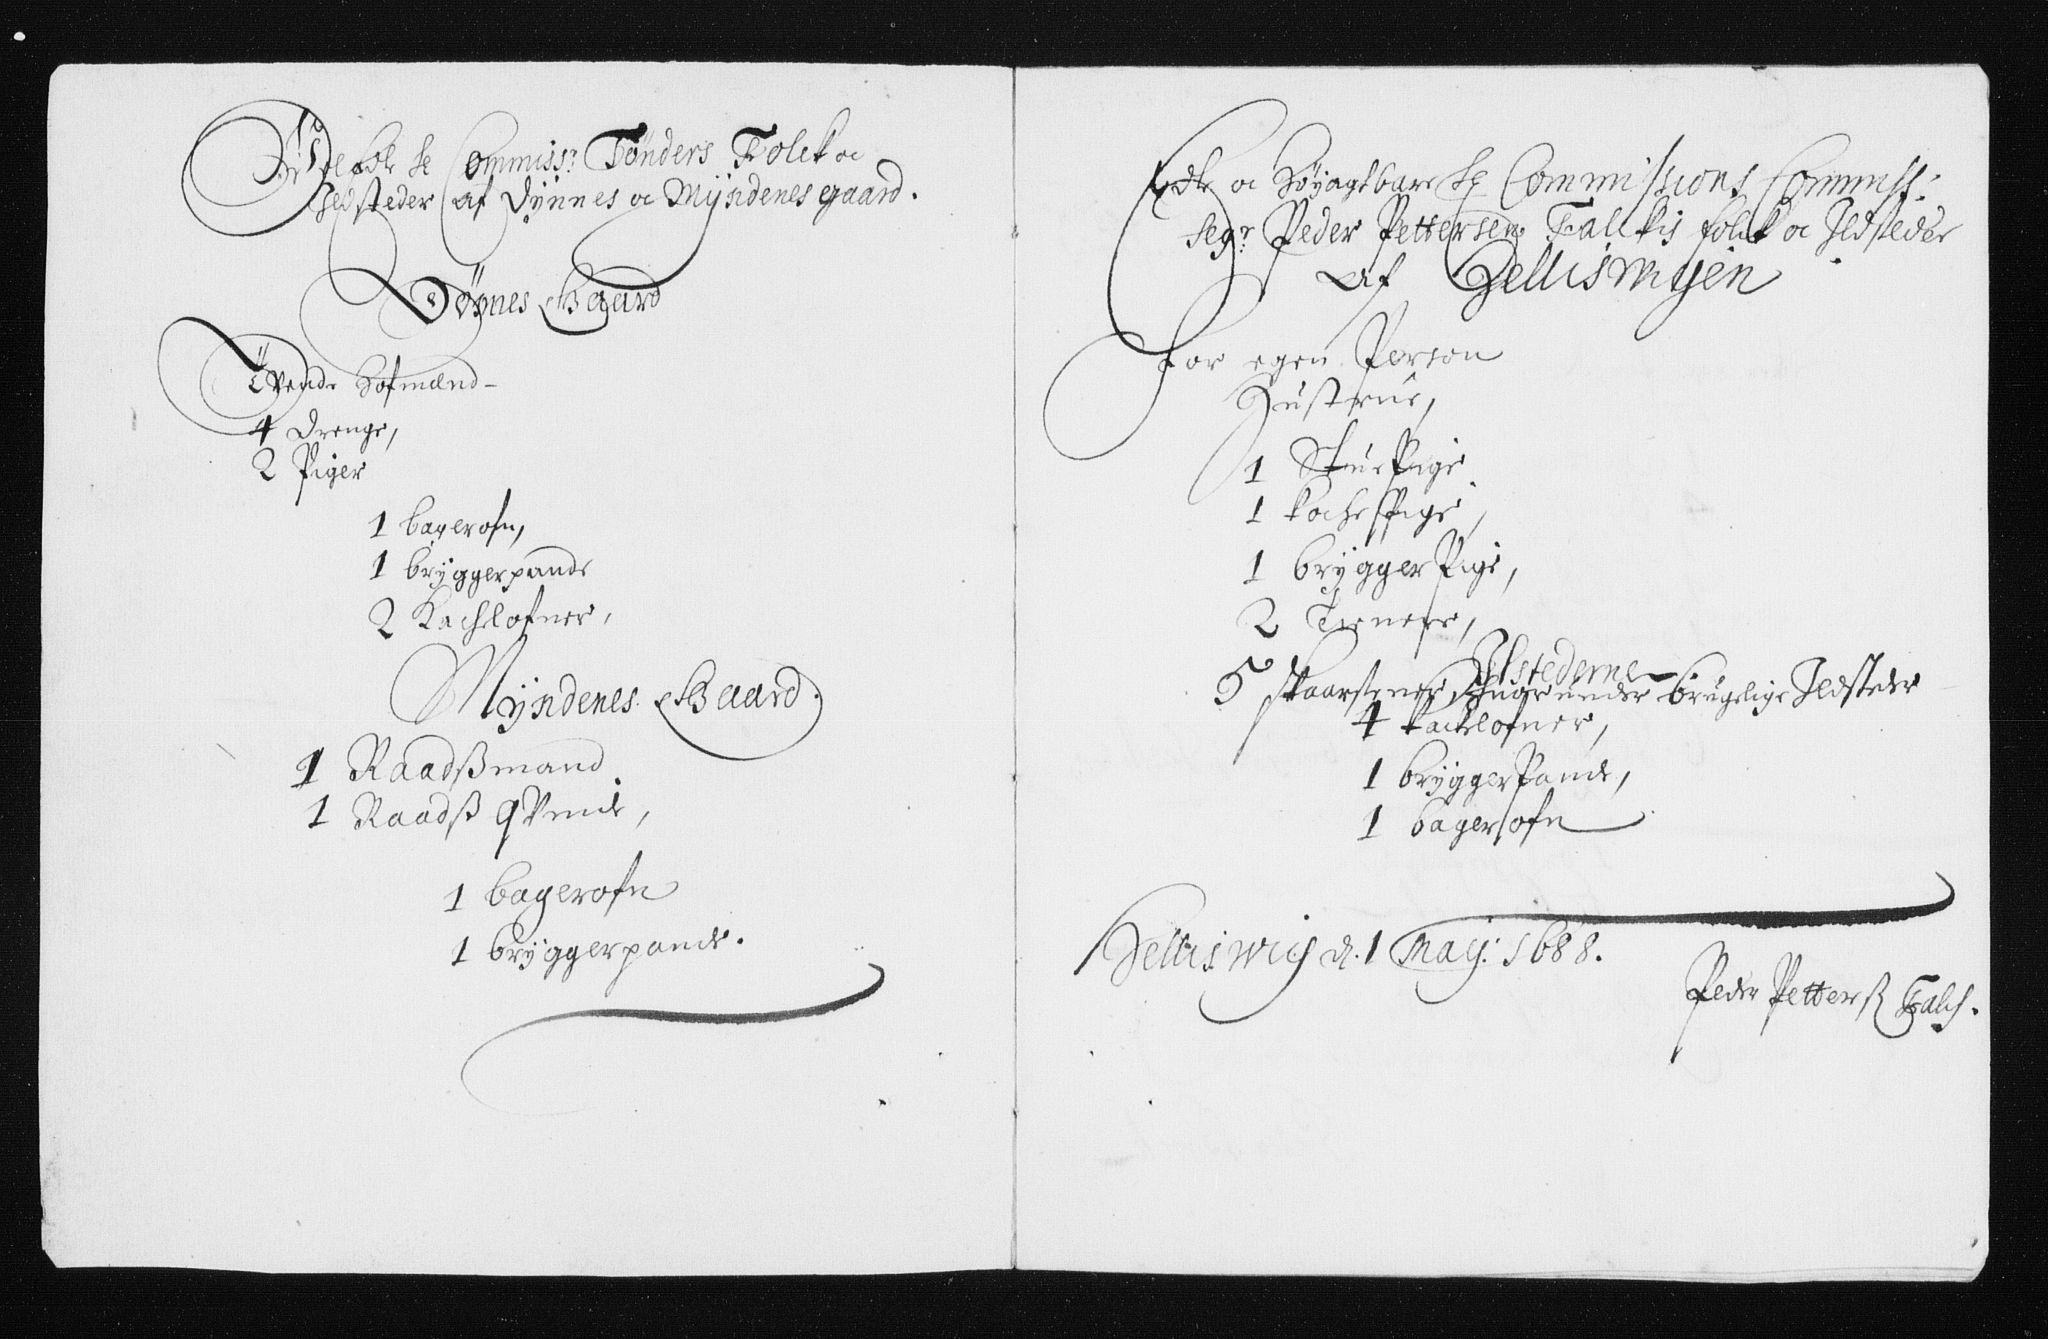 Velædle hr Commiss: Tønders Folck oc
Jldsteder af Dynnes oc Myndenes gaard.
Dønnes Gaard
Tvende Hofmænd
4 drenge,
2 Piger
1 bagerofn,
1 bryggerpande
2 Kachelofner,
Myndenes Gaard.
1 Raadßmand
1 Raadß qvinde,
1 bagerofn
1 bryggerpande.
Edle oc Høyagtbare Hr Commissions Commiss:
Segr Peder Pettersen Falckis folck oc Jldsteder
af Hellisvigen
For egen Person
Hustrue,
1 StuePige
1 kochePige,
1 bryggerPige,
2 Tienere,
Jlstederne
5 skaarstener hvorunder brugelige Jldsteder
4 kachelofner,
1 bryggerPande,
1 bagerofn
Hellisvig d. 1 Maij: 1688.
Peder Petterß Falch.